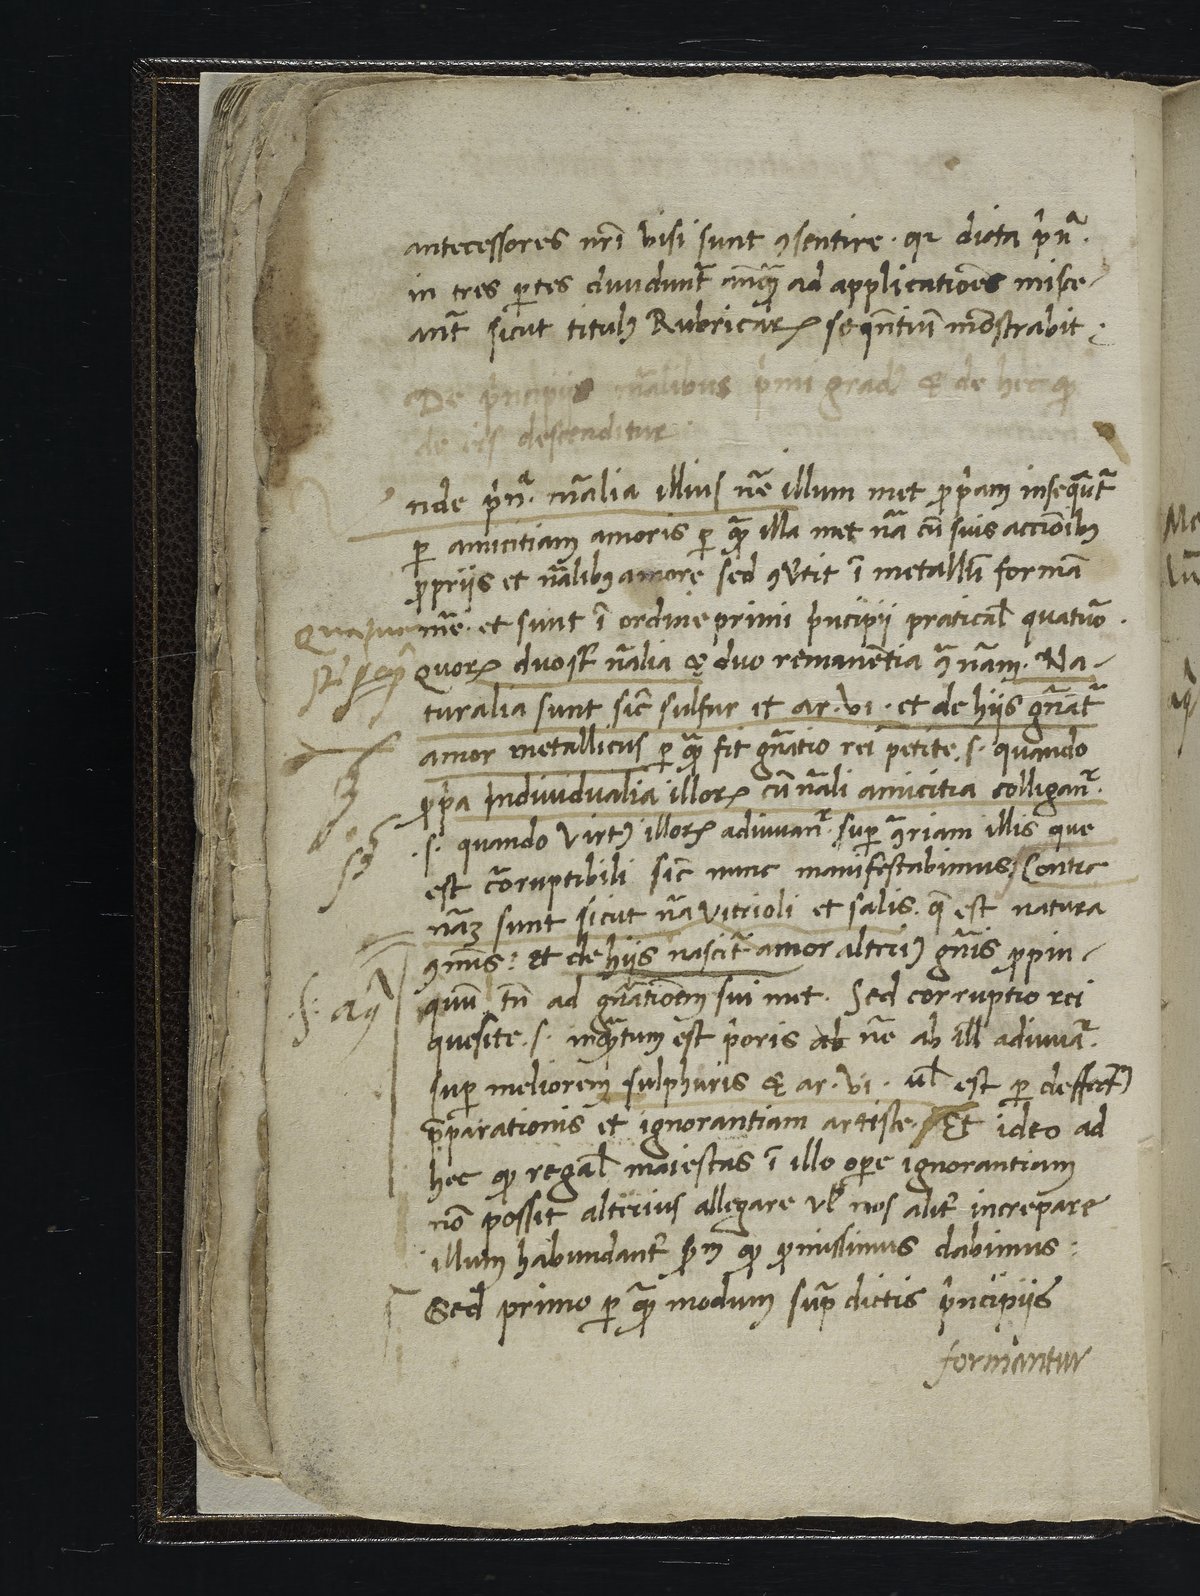 antecessores nr̄i visi sunt ꝯsentire · qꝛ dicta p̄nᵃ.
in tres ꝑtes diuidunt̄ ad applicationēs misce-
ant̄ sicut titulꝰ Rubricaꝝ seqn̄tiū mōstrabit :
De pⁱncipijs nāalibus pⁱmi grad⁹ & de hec
de eis descenditur
nde pⁱnᵃ. nāalia illius nāe illum met ꝓpⁱam insequūt̄
ꝑ amicitiam amoris ꝑ qᵃꝫ illa met nāa cū suis actionibꝰ
ꝓpriis et nāalibꝰ amore, sed ꝯv̄tit ī metallū formā
nāe · et sunt ī ordine primi pⁱncipij practical̄ quatuo᷑ .
quoꝝ duo sūt nāalia & duo remanentia ꝯᵃ nāam. Na-
turalia sunt sic̄ sulfur et ar · vi · et de hijs gn̄at̄
amor metallicus ꝑ qᵃꝫ fit gn̄atio rei petite · s · quando
ꝓpⁱa Indiuidualia illoꝝ cū nāali amicitia colliganᵗ.
· s · quando virtꝰ illoꝝ adiuuanᵗ. super ꝯᵃriam illis que
est coruptibili sic̄ nunc manifestabimus Contᵃ
nāaꝫ sunt sicut nāa vitrioli et salis. q̄ est natura
ꝯmūs : et de hijs nascit̄ amor alteriꝰ gn̄is ꝓpin-
quū tn̄ ad gn̄ationem sui met. Sed corruptio rei
quesite · s · inqᵃꝫtum est pⁱoris ab nāe ab ill̄ adiuuaᵗ.
super meliorem sulphuris & ar · vi · ul̄ est ꝑ deffectꝰ
p̄parationis et ignorantiam artiste. Et ideo ad
hec qꝫ regal̄ maiestas ī illo opere ignorantiam
nō possit alterius allegare vl̄ nos alit̄ increpare
illum habundant̄ ꝓmissimus dabimus :
Sed primo ꝑ qᵃꝫ modum supᵃ dictis pⁱncipijs
formantur